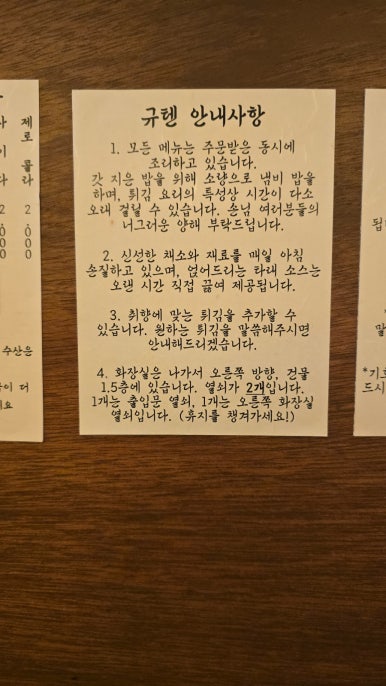 규텐 안내사항
1. 모든 메뉴는 주문받은 동시에
조리하고 있습니다.
갓 지은 밥을 위해 소량으로 냄비 밥을
하며, 튀김 요리의 특성상 시간이 다소
오래 걸릴 수 있습니다. 손님 여러분들의
너그러운 양해 부탁드립니다.
2. 신선한 채소와 재료를 매일 아침
손질하고 있으며, 얹어드리는 타래 소스는
오랜 시간 직접 끓여 제공됩니다.
3. 취향에 맞는 튀김을 추가할 수
있습니다. 원하는 튀김을 말씀해주시면
안내해드리겠습니다.
4. 화장실은 나가서 오른쪽 방향, 건물
1.5층에 있습니다. 열쇠가 2개입니다.
1개는 출입문 열쇠, 1개는 오른쪽 화장실
열쇠입니다. (휴지를 챙겨가세요!)
제로 콜라 2000
수산은
이 더
요
됩
말
*기호
드시